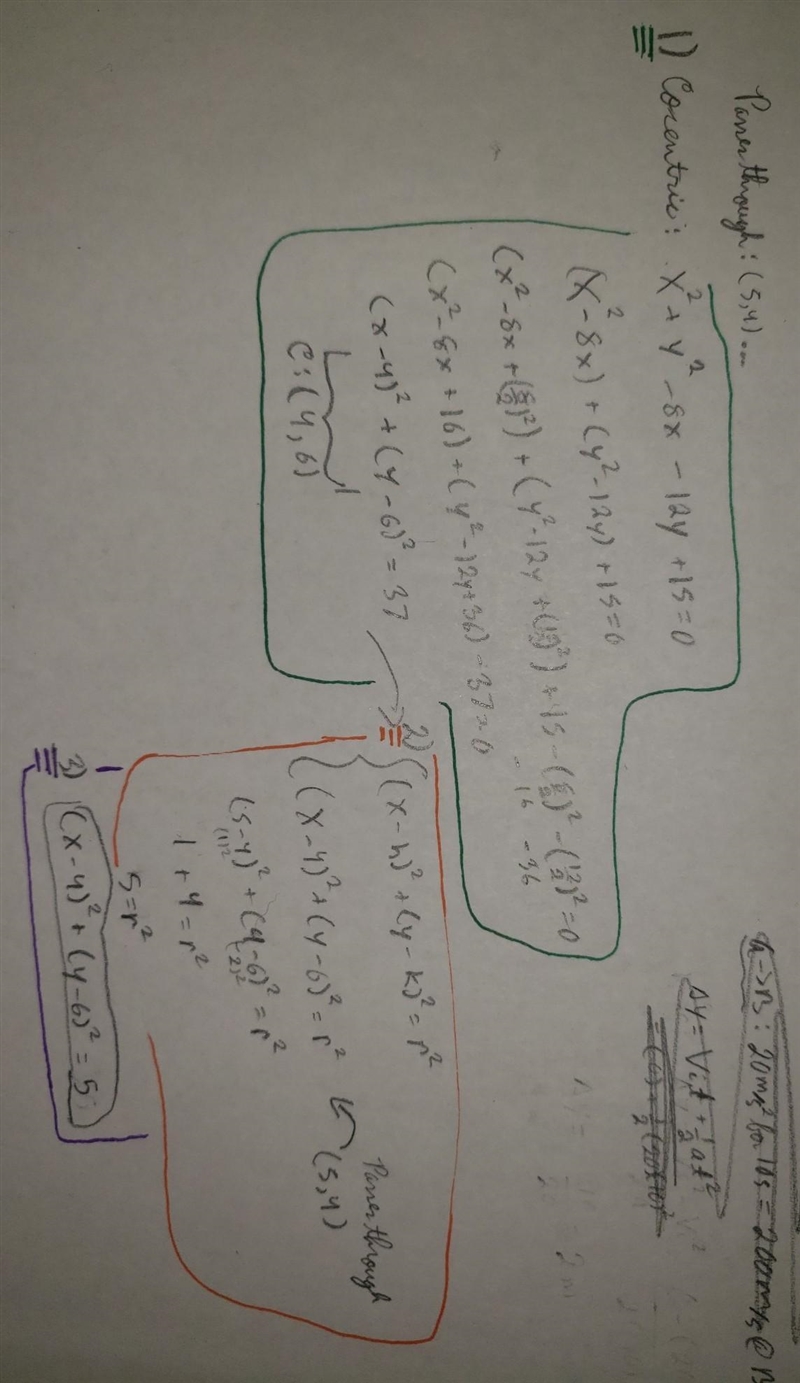 Passes through: (5,4)...
1) Cocentric: x² + y² - 8x - 12y + 15 = 0
(x² - 8x) + (y² - 12y) + 15 = 0
(x² - 8x + (8/2)²) + (y² - 12y + (12/2)²) + 15 - (8/2)² - (12/2)² = 0
- 16 - 36
(x² - 8x + 16) + (y² - 12y + 36) - 37 = 0
(x - 4)² + (y - 6)² = 37
C: (4, 6)
2) (x - h)² + (y - k)² = r²
(x - 4)² + (y - 6)² = r²
Passes through (5,4)
(5 - 4)² + (4 - 6)² = r²
(1)² (-2)²
1 + 4 = r²
5 = r²
3) (x - 4)² + (y - 6)² = 5
A→B: 20m/s² for 10s = 200m/s @ B
Δy = Vit + 1/2 at²